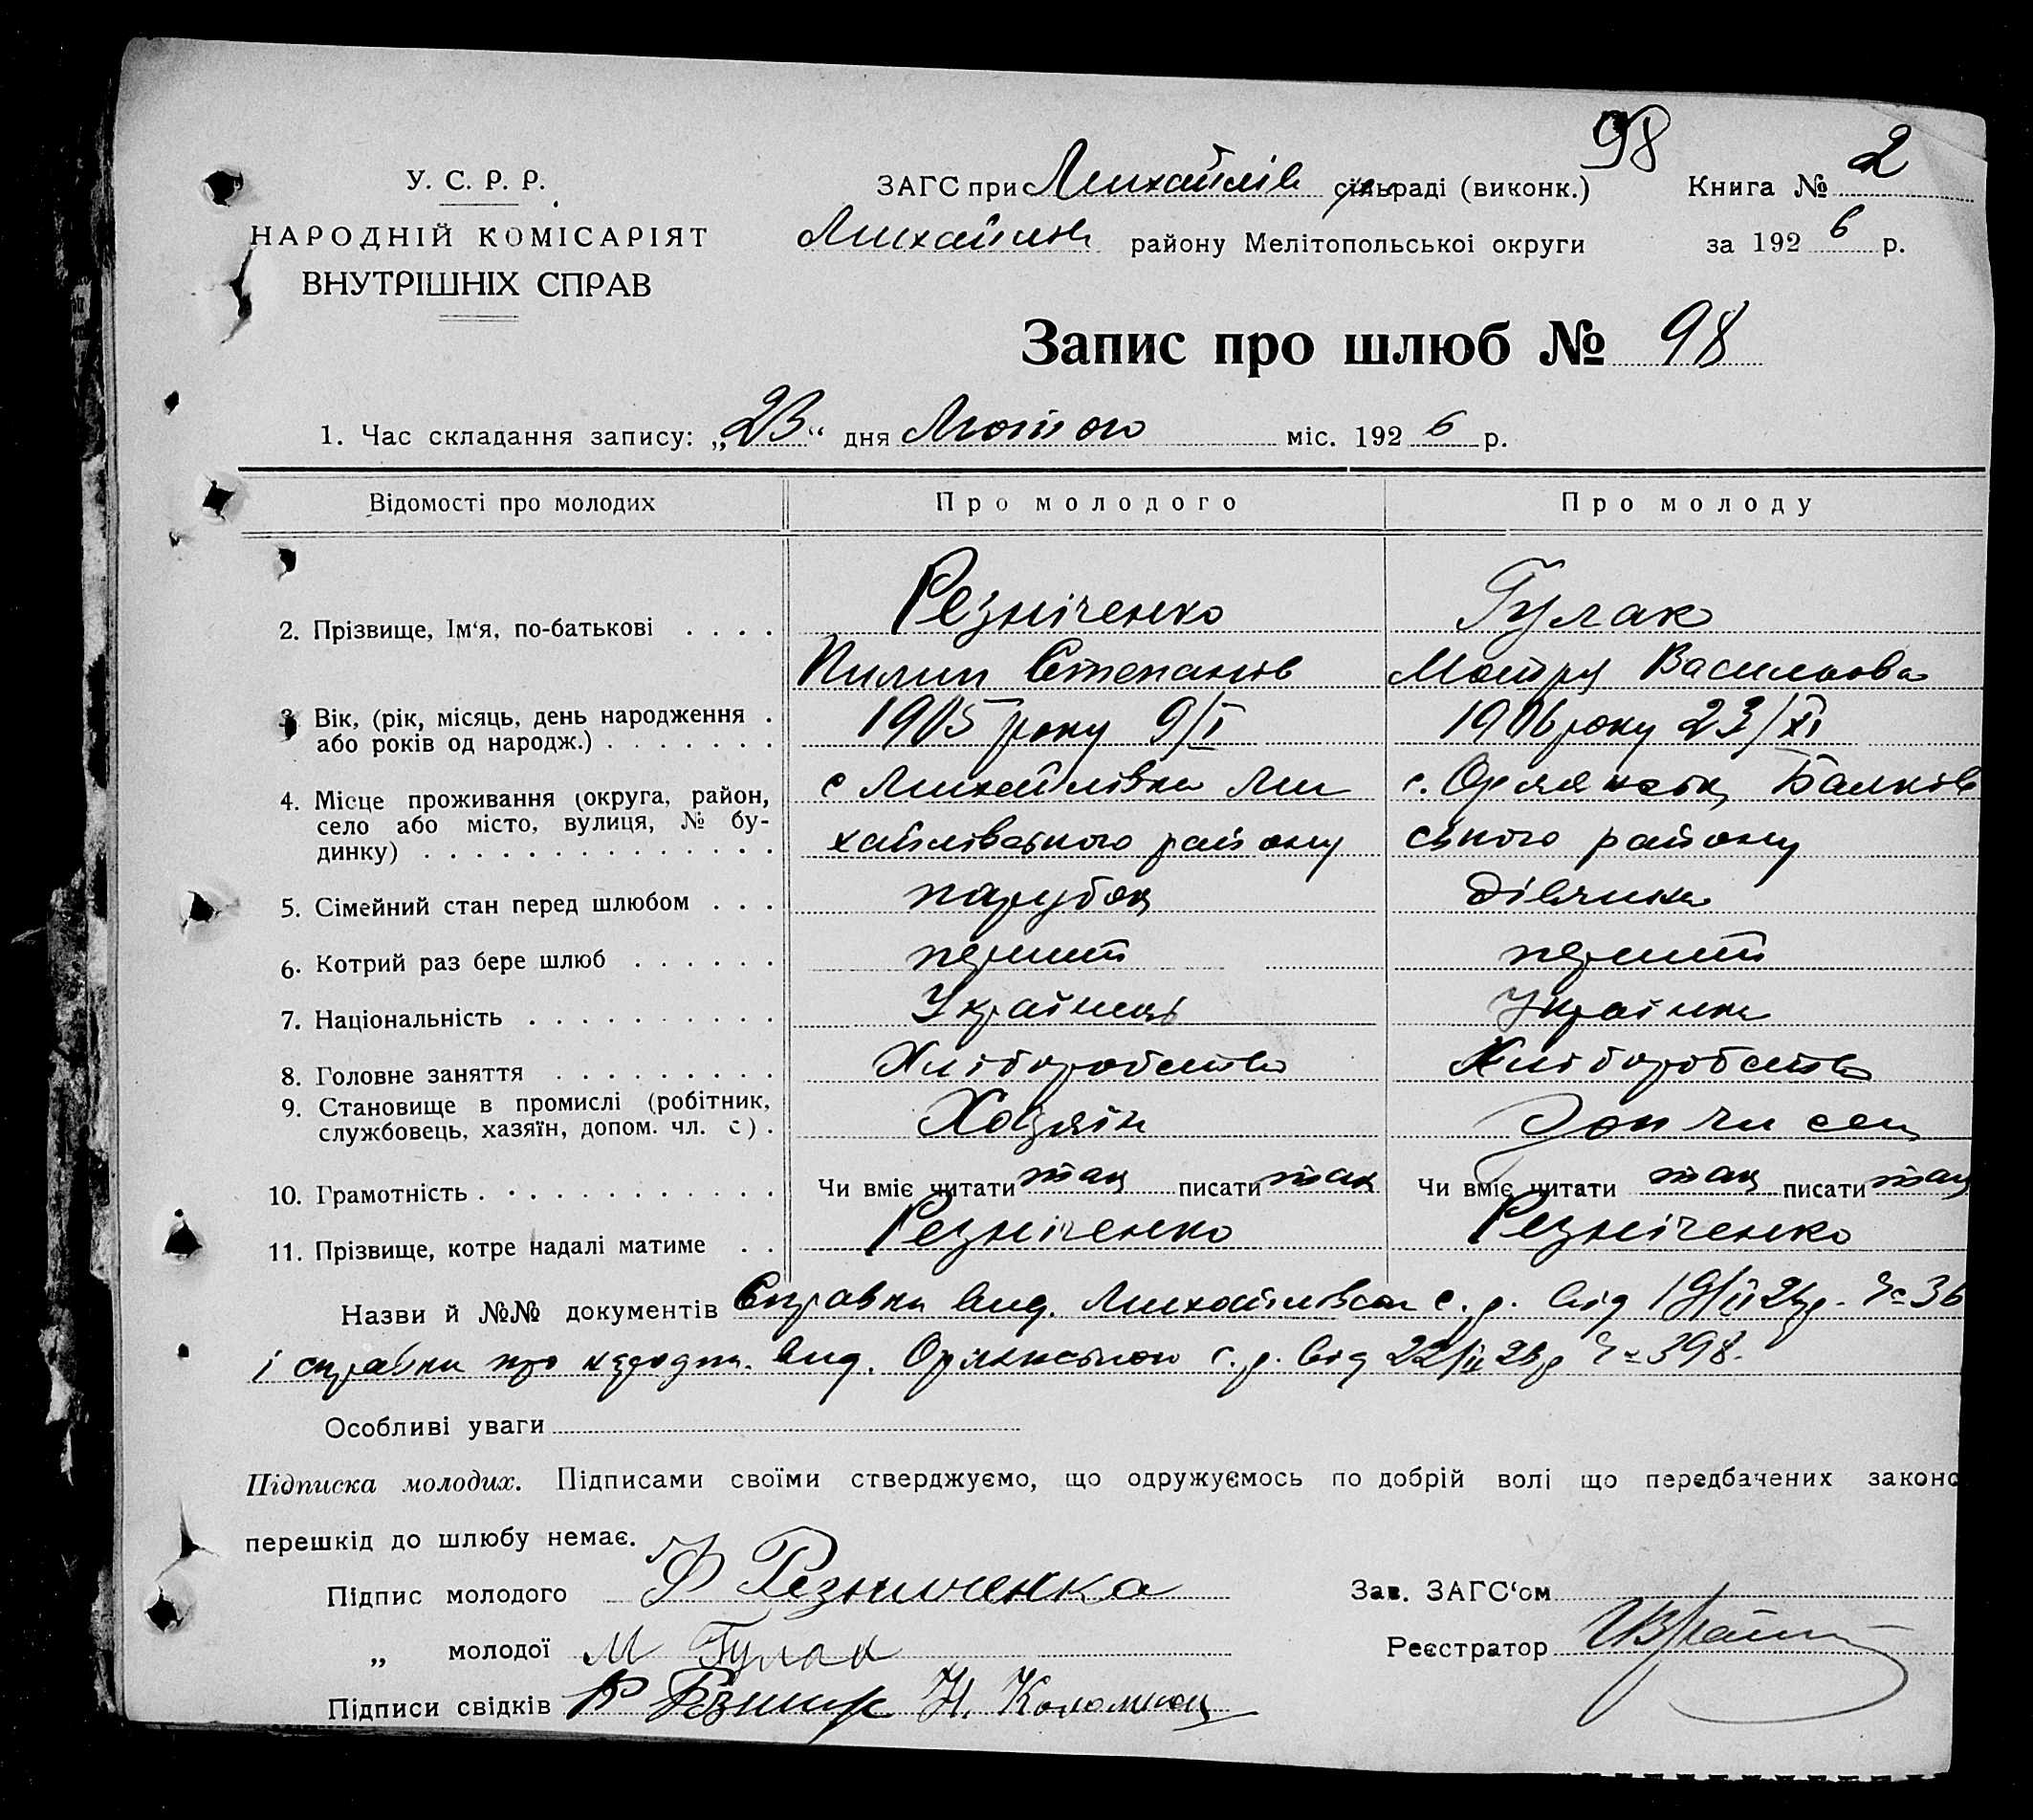 98
У. С. Р. Р.
ЗАГС при Михайлів сільраді (виконк.) Книга № 2
НАРОДНІЙ КОМІСАРІЯТ
Михайлів району Мелітопольської округи за 1926 р.
ВНУТРІШНІХ СПРАВ
Запис про шлюб № 98
1. Час складання запису: „23“ дня Лютого міс. 1926 р.
Відомості про молодих Про молодого Про молоду
2. Прізвище, Ім‘я, по-батькові . . . . Резніченко Гулак
Пилип Степанів Мотря Васильова
3. Вік, (рік, місяць, день народження . 1905 року 9/I 1906 року 23/XI
або років од народж.) . . . . . . .
4. Місце проживання (округа, район, с Михайлівка Ми с. Орлянськ Балків
село або місто, вулиця, № бу-
динку) . . . . . . . . . . . . . . хайлівського району ського району
5. Сімейний стан перед шлюбом . . . парубок дівчина
6. Котрий раз бере шлюб . . . . . . перший перший
7. Національність . . . . . . . . . . Українець Українка
8. Головне заняття . . . . . . . . . Хліборобство Хліборобство
9. Становище в промислі (робітник, Хозяїн
службовець, хазяїн, допом. чл. с) . Доп чл сем
10. Грамотність . . . . . . . . . . . . Чи вміє читати так писати так Чи вміє читати так писати так
11. Прізвище, котре надалі матиме . . Резніченко Резніченко
Назви й №№ документів Справка вид. Михайлівською с. р. від 19/II 26р. Ч= 36
і справки про народж. вид. Орлянською с. р. від 22/II 26р Ч= 398.
Особливі уваги
Підписка молодих. Підписами своїми стверджуємо, що одружуємось по добрій волі що передбачених законо
перешкід до шлюбу немає.
Підпис молодого Ф Резниченка Зав. ЗАГС‘ом
„ молодої М Гулак Реєстратор
Підписи свідків Н. Коломиец